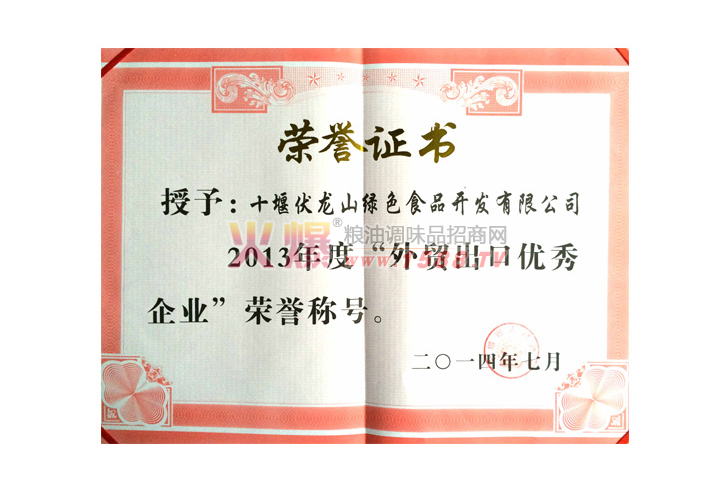 荣誉证书
授予：十堰伏龙山绿色食品开发有限公司
火爆®粮油调味品招商网
www.1588.TV
2013年度“外贸出口优秀
企业”荣誉称号。
二〇一四年七月